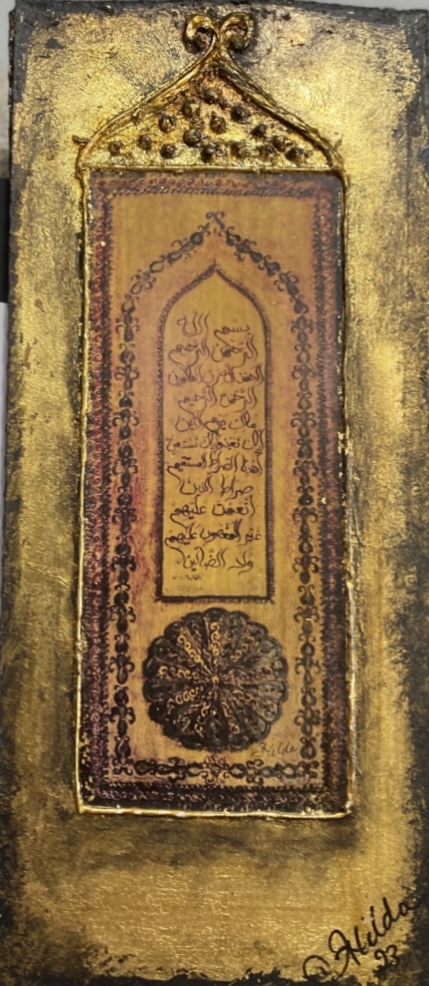 بسم الله
الرحمن الرحيم
الحمد لله رب العالمين
الرحمن الرحيم
مالك يوم الدين
اياك نعبد واياك نستعين
اهدنا الصراط المستقيم
صراط الذين
أنعمت عليهم
غير المغضوب عليهم
ولا الضالين
Hilda
Hilda
23